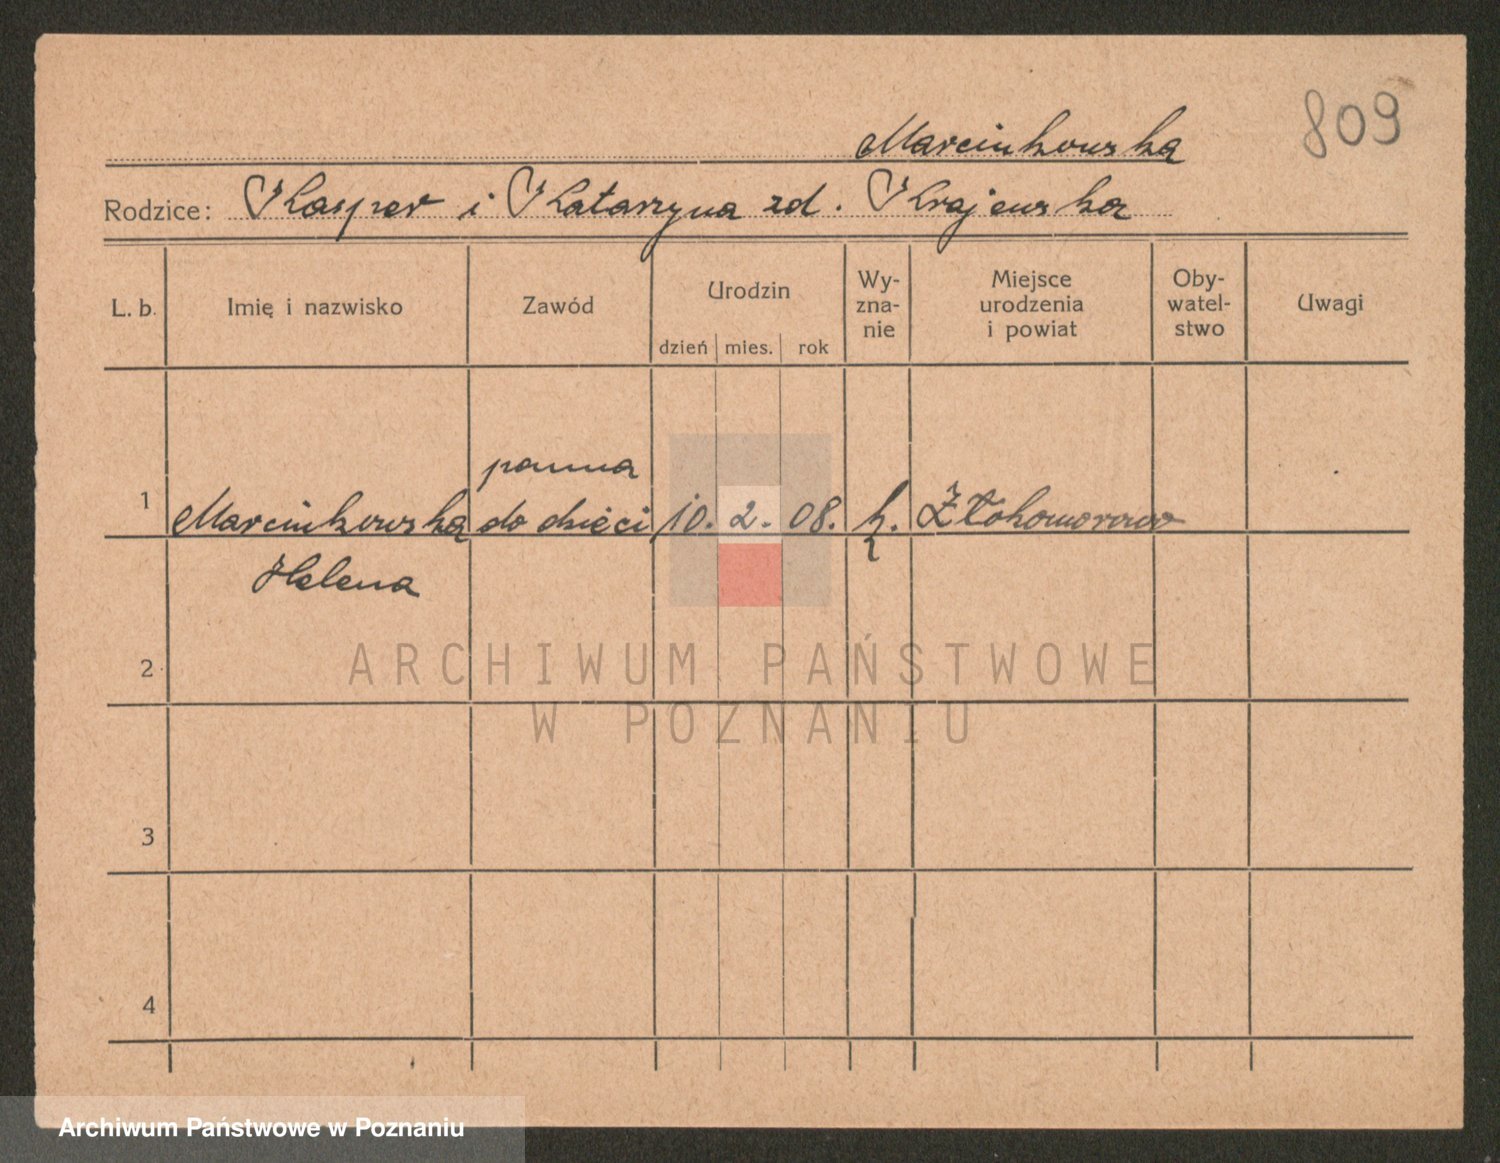 809
Marcinkowska
Rodzice: Kasper i Katarzyna zd. Krajewska
L. b. Imię i nazwisko Zawód Urodzin Wy-zna-nie Miejsce urodzenia i powiat Oby-watel-stwo Uwagi
dzień mies. rok
panna
1 Marcinkowska do dzieci 10. 2. 08. k. Złokomorowo
Helena
2
ARCHIWUM PAŃSTWOWE
W POZNANIU
3
4
Archiwum Państwowe w Poznaniu